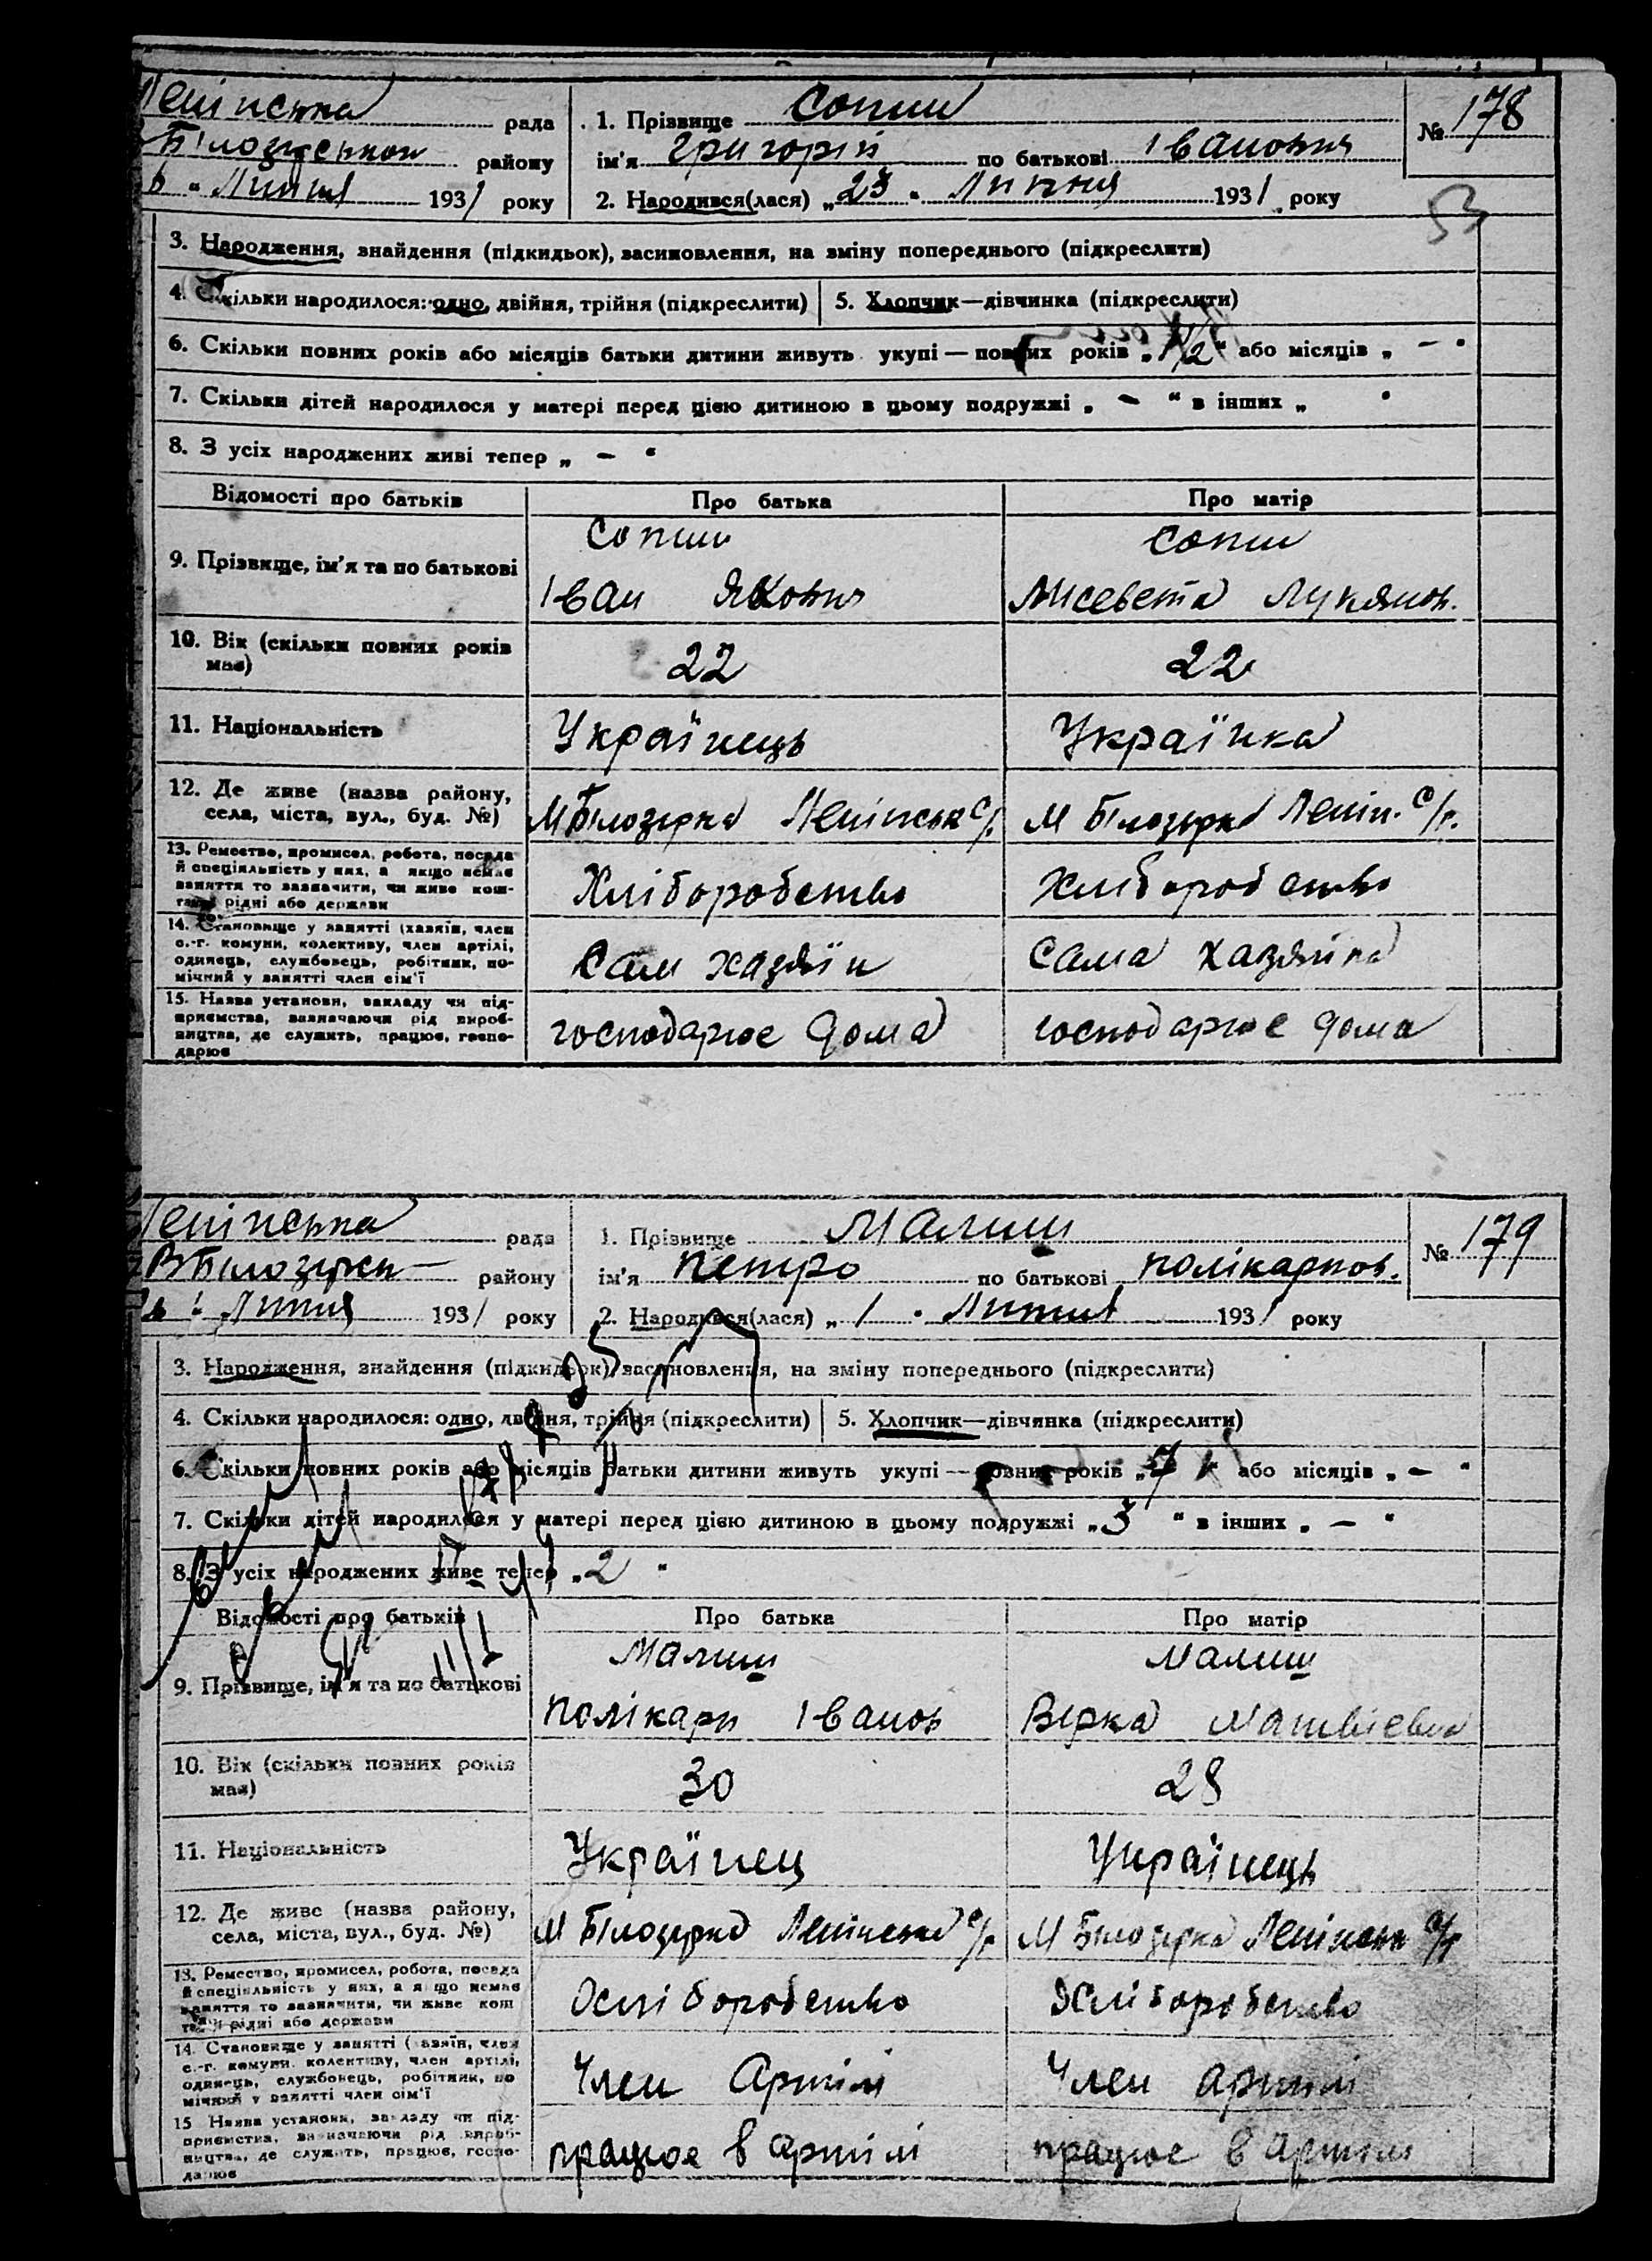 Ленінська рада
Білозерськом району
Липня 1931 року
1. Прізвище Сопин
ім'я Григорій по батькові Іванович
2. Народився(лася) „23" Липня 1931 року
№ 178
53
3. Народження, знайдення (підкидьок), засиновлення, на зміну попереднього (підкреслити)
4. Скільки народилося: одно, двійня, трійня (підкреслити) 5. Хлопчик—дівчинка (підкреслити)
6. Скільки повних років або місяців батьки дитини живуть укупі — повних років „1/2" або місяців „ — "
7. Скільки дітей народилося у матері перед цією дитиною в цьому подружжі „ — " в інших „ "
8. З усіх народжених живі тепер „ — "
Відомості про батьків Про батька Про матір
Сопин Сопин
9. Прізвище, ім'я та по батькові
Іван Якович Лисевета Лукянов.
10. Вік (скільки повних років
має) 22 22
11. Національність Українець Українка
12. Де живе (назва району,
села, міста, вул., буд. №) М Білозірка Ленінськ с/р. М Білозірка Ленін. с/р.
13. Ремество, промисел, робота, посада
й спеціяльність у них, а якщо немає
заняття то зазначити, чи живе кош-
тами рідні або держави
Хліборобство Хліборобство
14. Становище у занятті (хазяїн, член
с.-г. комуни, колективу, член артілі,
одинець, службовець, робітник, по-
мічний у занятті член сім'ї
Сам хазяїн Сама хазяйка
15. Назва установи, закладу чи під-
приємства, визначаючи рід вироб-
ництва, де служить, працює, госпо-
дарює
господарює дома господарює дома
Ленінська рада
ВБілозірськ району
Липня 1931 року
1. Прізвище Малиш
ім'я Петро по батькові Полікарпов.
2. Народився(лася) „1" Липня 1931 року
№ 179
3. Народження, знайдення (підкидьок), засиновлення, на зміну попереднього (підкреслити)
4. Скільки народилося: одно, двійня, трійня (підкреслити) 5. Хлопчик—дівчинка (підкреслити)
6. Скільки повних років або місяців батьки дитини живуть укупі — повних років „7" або місяців „ — "
7. Скільки дітей народилося у матері перед цією дитиною в цьому подружжі „3" в інших „ — "
8. З усіх народжених живе тепер „2"
Відомості про батьків Про батька Про матір
Малиш Малиш
9. Прізвище, ім'я та по батькові
Полікарп Іванов Вірка Матвієвна
10. Вік (скільки повних років
має) 30 28
11. Національність Українец Українець
12. Де живе (назва району,
села, міста, вул., буд. №) М Білозірка Ленінська с/р М Білозірка Ленінськ с/р
13. Ремество, промисел, робота, посада
й спеціяльність у них, а якщо немає
заняття то зазначити, чи живе кош
тами рідні або держави
Хліборобство Хліборобство
14. Становище у занятті (хазяїн, член
с.-г. комуни, колективу, член артілі,
одинець, службовець, робітник, по
мічний у занятті член сім'ї
Член Артілі Член артілі
15 Назва установи, закладу чи під-
приємства, визначаючи рід вироб-
ництва, де служить, працює, госпо-
дарює
працює в артілі працює в артілі